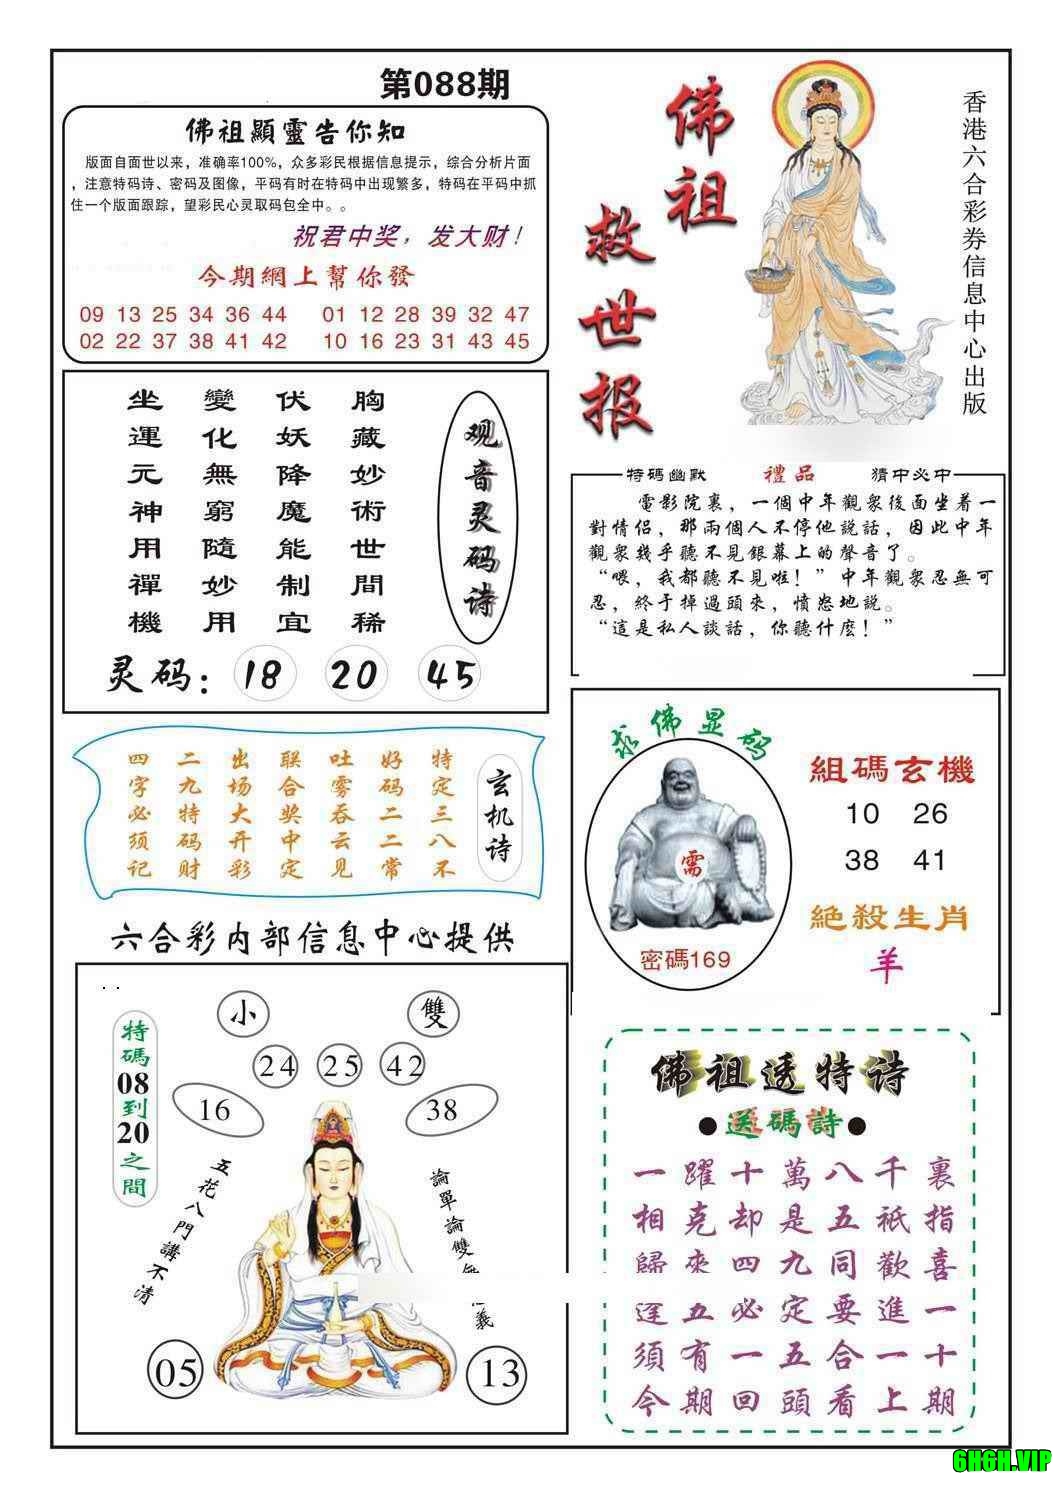 第088期
佛祖顯靈告你知
版面自面世以来，准确率100%，众多彩民根据信息提示，综合分析片面
，注意特码诗、密码及图像，平码有时在特码中出现繁多，特码在平码中抓
住一个版面跟踪，望彩民心灵取码包全中。。
祝君中奖，发大财！
今期網上幫你發
09 13 25 34 36 44 01 12 28 39 32 47
02 22 37 38 41 42 10 16 23 31 43 45
佛祖
救世报
香港六合彩券信息中心出版
观音灵码诗
胸藏妙術世間稀
伏妖降魔能制宜
變化無窮隨妙用
坐運元神用禪機
灵码：18 20 45
特碼幽默 禮品 猜中必中
電影院裏，一個中年觀衆後面坐着一
對情侣，那兩個人不停他説話，因此中年
觀衆幾乎聽不見銀幕上的聲音了。
“喂，我都聽不見啦！”中年觀衆忍無可
忍，終于掉過頭來，憤怒地説。
“這是私人談話，你聽什麽！”
玄机诗
特定三八不
好码二二常
吐雾吞云见
联合奖中定
出场大开彩
二九特码财
四字必须记
求佛显码
需
密碼169
組碼玄機
10 26
38 41
絶殺生肖
羊
六合彩内部信息中心提供
特碼08到20之間
小 雙
24 25 42
16 38
五花八門講不清
論單論雙無義
05 13
佛祖透特诗
●送碼詩●
一躍十萬八千裏
相克却是五祇指
歸來四九同歡喜
逢五必定要進一
須有一五合一十
今期回頭看上期
6H6H.VIP